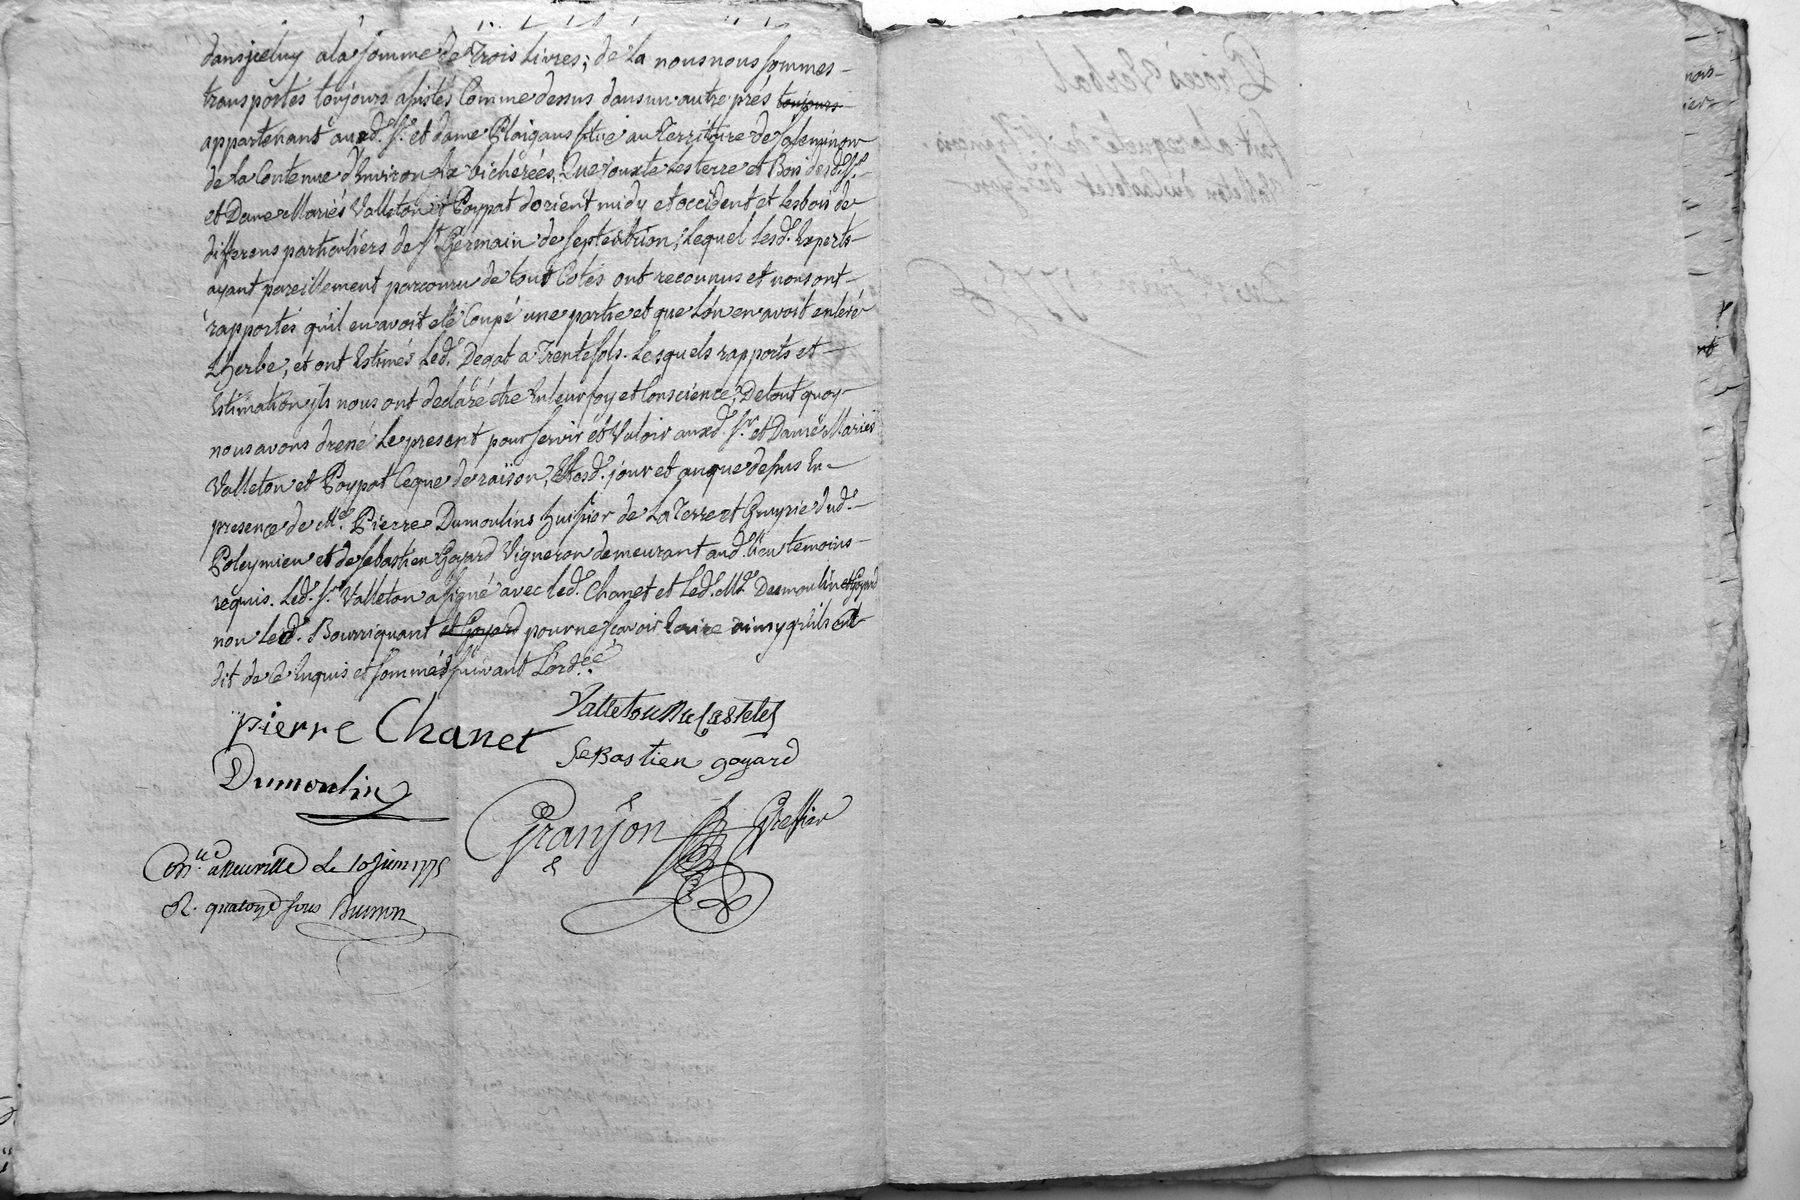 dans iceluy a la somme de Trois Livres; de La nous nous sommes
transportés toujours assistés Comme dessus dans un autre prés toujours
appartenant auxd. Sr. et dame situé au Territoire de
de la Contenue d'Environ bicherées, Que jouxte Les terre et Bois desd. Sr.
et Dame Mariés Valleton et Poypat d'orient midy et occident et Les bois de
differens particuliers de St Germain de septentrion; Lequel Lesd. Experts
ayant pareillement parcouru de tout Cotés ont reconnus et nous ont
rapportés qu'il en avoit eté Coupé une partie et que L'on en avoit enlevé
L'herbe, et ont Estimés Led. Degat a Trente sols. Lesquels rapports et
Estimation ils nous ont declaré etre En leur foy et Conscience; De tout quoy
nous avons dressé Le present pour servir et Valoir auxd. Sr. et Dame Mariés
Valleton et Poypat Ce que de raison, Lesd. jour et an que dessus En
presence de Me. Pierre Dumoulins huissier de La Terre et Gruyrie dud.
Poleymieu et de Sebastien Goyard Vigneron demeurant aud. lieu temoins
requis. Led. Sr. Valleton a signé avec led. Chanet et Led. Me. Dumoulin et Goyard
non Led. Bourriquant et Goyard pour ne sçavoir ainsy qu'ils ont
dit de ce Enquis et sommés suivant L'ordce.
pierre Chanet
Valleton Du Castelet
Sebastien goyard
Dumoulin
Granjon Greffier
Conlle a Neuville Le 10 Juin 1775
R. quatorze sous
Procès Verbal
fait a la requete de Sr. François
Valleton du Castelet de Lyon